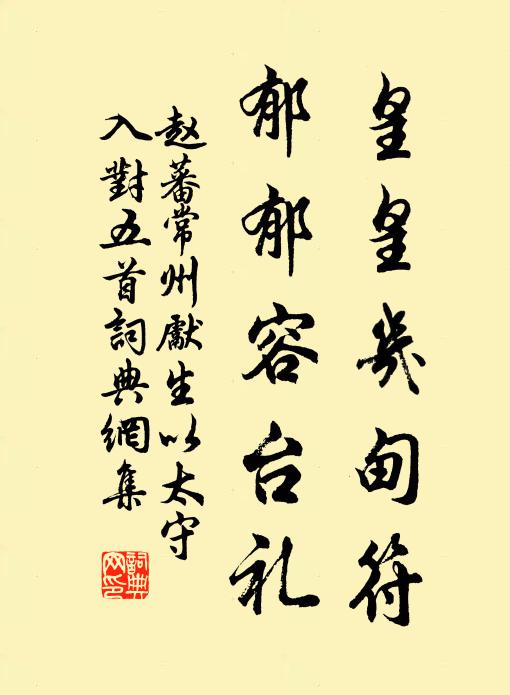 皇皇几甸符
郁郁容台礼
赵蕃常州獻生以太守
入對五首詞典網集
詞典網印